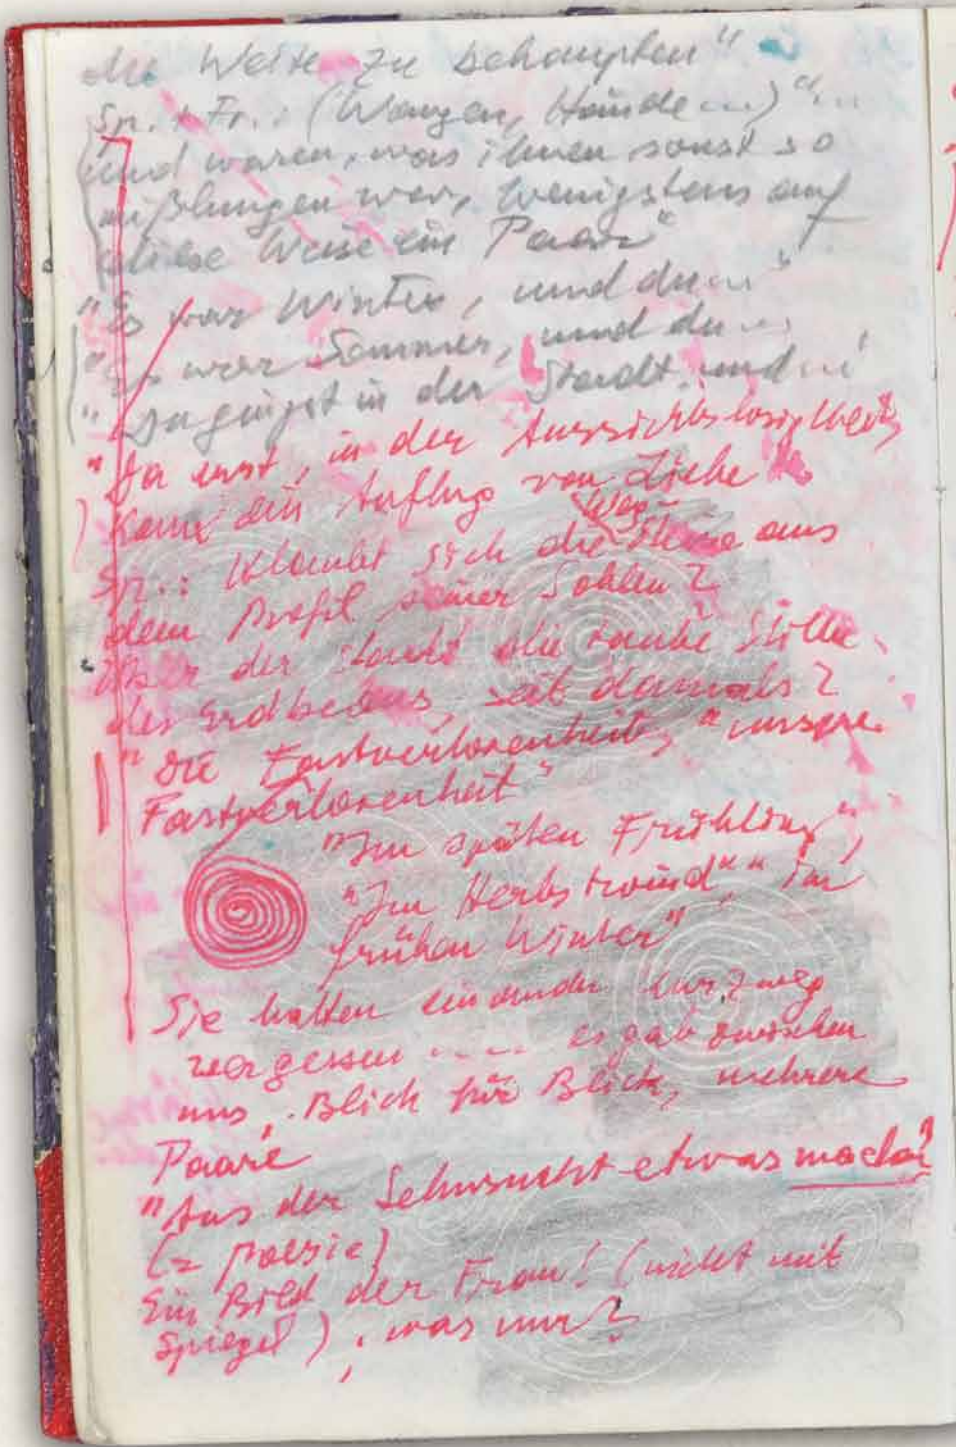 die Weite zu behaupten"
Sp. + Fr.: (Wangen, Hände ...) "...
und waren, was ihnen sonst so
mißlungen war, wenigstens auf
diese Weise ein Paar"
"Es war Winter, und du ..."
"Es war Sommer, und du ...
"Du gingst in der Stadt, und ..."
"Da erst, in der Aussichtslosigkeit,
kam ein Anflug von Liebe"
Weg-
Sp.: Klaubt sich die Steine aus
dem Profil seiner Sohlen?
Über der Stadt die taube Stille
des Erdbebens, seit damals?
"Die Fastverlorenheit", "unsere
Fastverlorenheit"
"Im späten Frühling",
"Im Herbstwind", "im
frühen Winter"
Sie hatten einander kurzweg
vergessen ..... es gab zwischen
uns, Blick für Blick, mehrere
Paare
"Aus der Sehnsucht etwas machen"
(= poesie)
Ein Bild der Frau! (nicht mit
Spiegel); was nur?